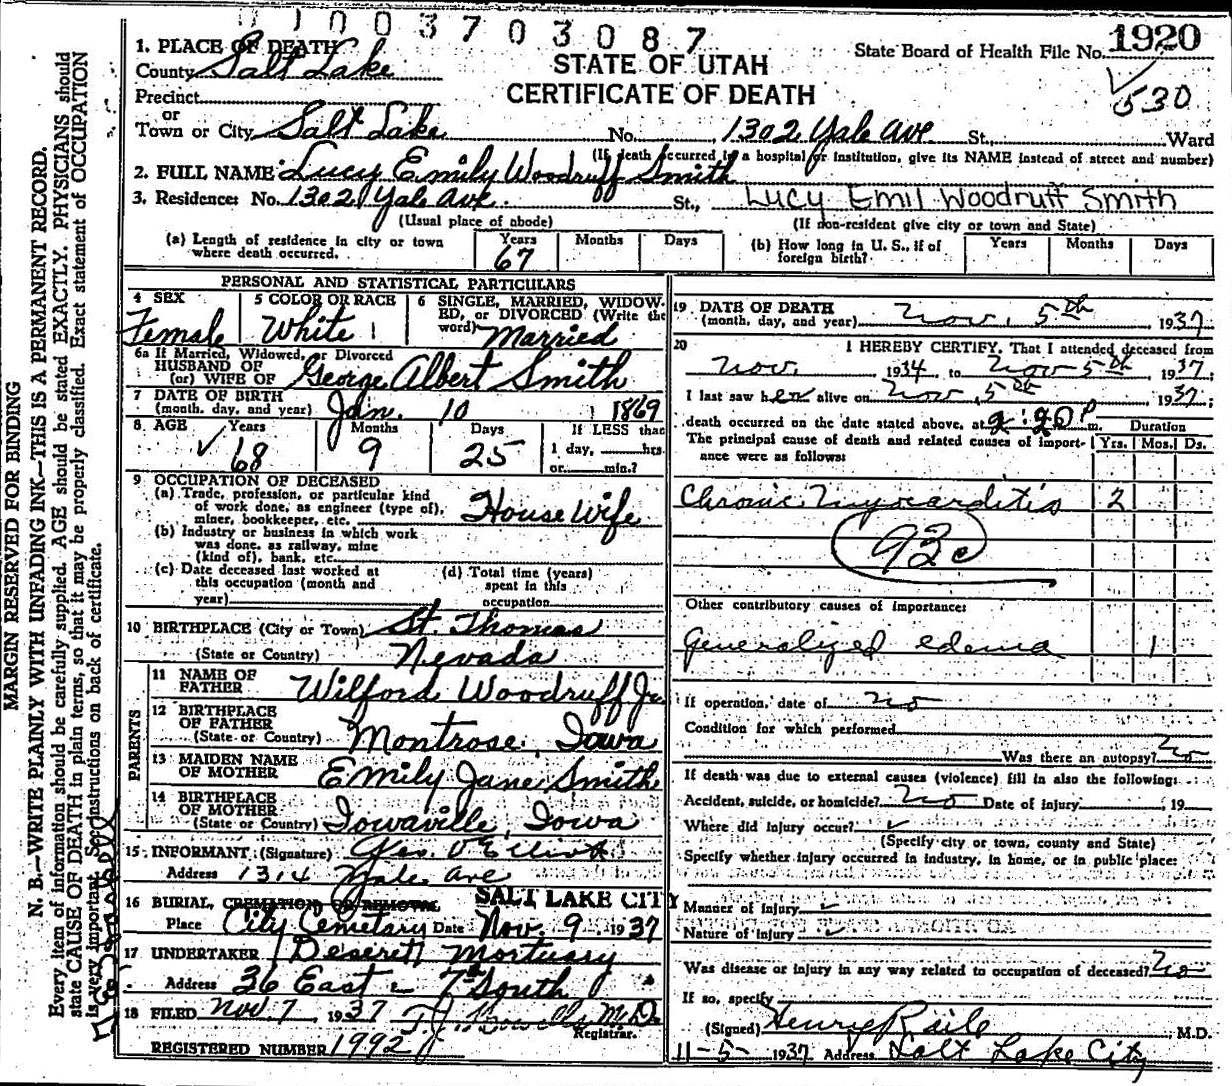 01003703087
1. PLACE OF DEATH
County Salt Lake
STATE OF UTAH
CERTIFICATE OF DEATH
State Board of Health File No. 1920
530
Precinct
or
Town or City Salt Lake No. 1302 Yale Ave. St., Ward
(If death occurred in a hospital or institution, give its NAME instead of street and number)
2. FULL NAME Lucy Emily Woodruff Smith
3. Residence: No. 1302 Yale Ave. St., Lucy Emil Woodruff Smith
(Usual place of abode) (If non-resident give city or town and State)
(a) Length of residence in city or town where death occurred. Years 67 Months Days
(b) How long in U. S., if of foreign birth? Years Months Days
PERSONAL AND STATISTICAL PARTICULARS
4 SEX Female
5 COLOR OR RACE White
6 SINGLE, MARRIED, WIDOWED, or DIVORCED (Write the word) Married
6a If Married, Widowed, or Divorced
HUSBAND OF
(or) WIFE OF George Albert Smith
7 DATE OF BIRTH
(month, day, and year) Jan. 10 1869
8 AGE Years 68 Months 9 Days 25 If LESS than
1 day, hrs.
or min.?
9 OCCUPATION OF DECEASED
(a) Trade, profession, or particular kind
of work done, as engineer (type of),
miner, bookkeeper, etc. House Wife
(b) Industry or business in which work
was done, as railway, mine
(kind of), bank, etc.
(c) Date deceased last worked at
this occupation (month and
year)
(d) Total time (years)
spent in this
occupation
10 BIRTHPLACE (City or Town) St. Thomas
(State or Country) Nevada
PARENTS
11 NAME OF
FATHER Wilford Woodruff Jr.
12 BIRTHPLACE
OF FATHER
(State or Country) Montrose, Iowa
13 MAIDEN NAME
OF MOTHER Emily Jane Smith
14 BIRTHPLACE
OF MOTHER
(State or Country) Iowaville, Iowa
15 INFORMANT (Signature) Geo.
Address 1314 Yale Ave
16 BURIAL, CREMATION OR REMOVAL SALT LAKE CITY
Place City Cemetary Date Nov. 9 1937
17 UNDERTAKER Deseret Mortuary
Address 36 East - 7th South
18 FILED Nov. 7 1937 T. J. Howells M.D.
Registrar.
REGISTERED NUMBER 1992
19 DATE OF DEATH
(month, day, and year) Nov. 5th 1937
20 I HEREBY CERTIFY, That I attended deceased from
Nov. 1934 to Nov 5th 1937;
I last saw her alive on Nov. 5th 1937;
death occurred on the date stated above, at 2:20 P m. Duration
The principal cause of death and related causes of importance were as follows: Yrs. Mos. Ds.
Chronic Myocarditis 2
93c
Other contributory causes of importance:
Generalized edema 1
If operation, date of no
Condition for which performed
Was there an autopsy? no
If death was due to external causes (violence) fill in also the following:
Accident, suicide, or homicide? no Date of injury , 19
Where did injury occur?
(Specify city or town, county and State)
Specify whether injury occurred in industry, in home, or in public place:
Manner of Injury
Nature of Injury
Was disease or injury in any way related to occupation of deceased? no
If so, specify
(Signed) Henry Raile M.D.
11-5- 1937 Address Salt Lake City
MARGIN RESERVED FOR BINDING
N. B.—WRITE PLAINLY WITH UNFADING INK—THIS IS A PERMANENT RECORD.
Every item of information should be carefully supplied. AGE should be stated EXACTLY. PHYSICIANS should
state CAUSE OF DEATH in plain terms, so that it may be properly classified. Exact statement of OCCUPATION
is very important. See instructions on back of certificate.